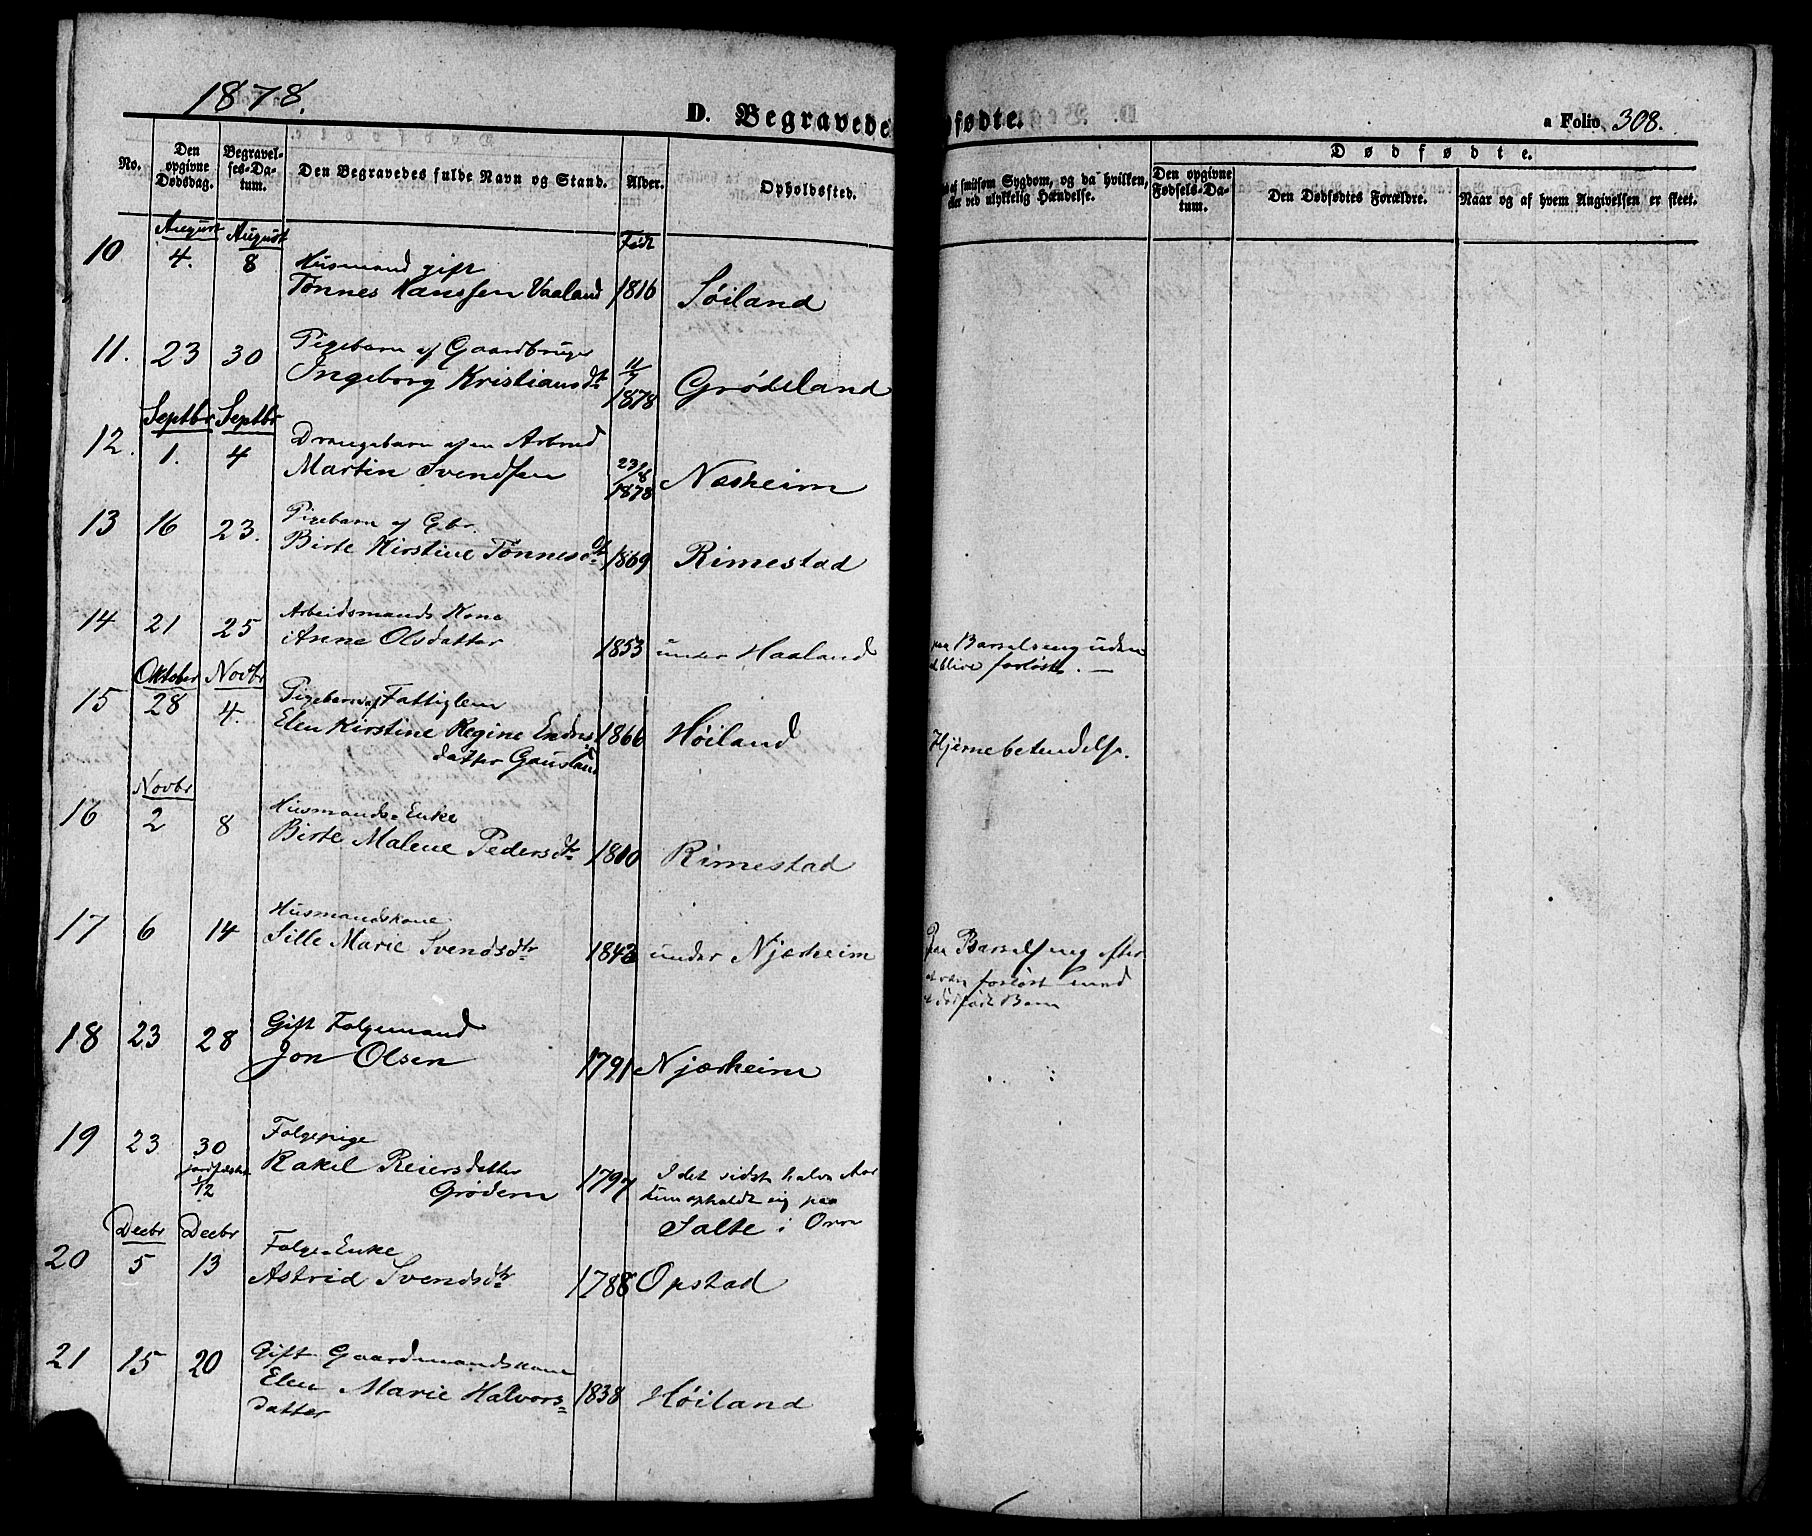 1878.
D. Begravede
dfødte.
a Folio 308.
No.
Den opgivne Dødsdag.
Begravel-ses-Da-tum.
Den Begravedes fulde Navn og Stand.
Alder.
Opholdssted.
af smitsom Sygdom, og da hvilken,
eller ved ulykkelig Hændelse.
Dødfødte.
Den opgivne Fødsels-Da-tum.
Den Dødfødtes Forældre.
Naar og af hvem Angivelsen er skeet.
August August Født
10 4. 8 Husmand gift
Tønnes Hanssen Vaaland 1816 Søiland
11. 23 30 Pigebarn af Gaardbruger
Ingeborg Kristiansdt 11/7 1878 Grødeland
Septbr Septbr
12. 1. 4 Drengebarn af en Arbmd
Martin Svendsen 23/8 1878 Næsheim
13 16 23. Pigebarn af Gbr.
Birte Kirstine Tønnesdt 1869 Rimestad
14 21 25 Arbeidsmands Kone
Anne Olsdatter 1853 under Haaland
paa Barselseng uden
at blive forløst. —
Oktober Novbr
15 28 4. Pigebarn af Fattiglem
Elen Kirstine Regine Endres
datter Gausland 1866 Høiland
Hjernebetendelse.
Novbr
16 2 8 Husmands-Enke
Birte Malene Pedersdtr 1810 Rimestad
17 6 14 Husmandskone
Sille Marie Svendsdtr 1843 under Njærheim
paa Barselseng efter
at være forløst med
et dødfødt Barn
18 23 28 Gift Folgemand
Jon Olsen 1791 Njærheim
19 23 30 Folgepige
jordfæstet 1/12
Rakel Reiersdatter
Grødem 1797 I det sidste halve Aar
kun opholdt sig paa
Salte i Orre
Decbr Decbr
20 5 13 Folge-Enke
Astrid Svendsdtr 1788 Opstad
21 15 20 Gift Gaardmandskone
Elen Marie Halvors=
datter 1838 Høiland